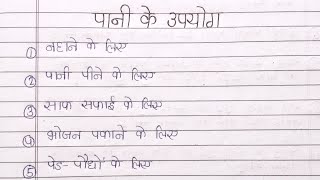 पानी के उपयोग
① नहाने के लिए
② पानी पीने के लिए
③ साफ सफाई के लिए
④ भोजन पकाने के लिए
⑤ पेड-पौधों के लिए